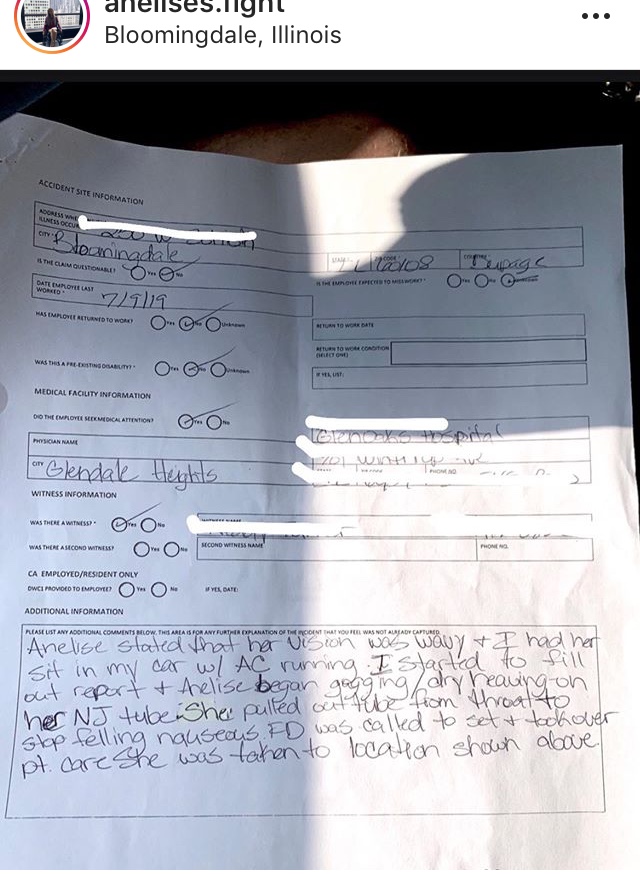 anelises.fight
Bloomingdale, Illinois
ACCIDENT SITE INFORMATION
ADDRESS
ILLNESS OCCUR
CITY
Bloomingdale
STATE
IL
60108
COUNTRY
Dupage
IS THE CLAIM QUESTIONABLE?
Yes No
IS THE EMPLOYEE EXPECTED TO MISS WORK?
Yes No
DATE EMPLOYEE LAST
WORKED
7/9/19
HAS EMPLOYEE RETURNED TO WORK?
Yes No Unknown
RETURN TO WORK DATE
RETURN TO WORK CONDITION
(SELECT ONE)
WAS THIS A PRE-EXISTING DISABILITY?
Yes No Unknown
IF YES, LIST:
MEDICAL FACILITY INFORMATION
DID THE EMPLOYEE SEEK MEDICAL ATTENTION?
Yes No
Glenoaks Hospital
PHYSICIAN NAME
701
CITY
Glendale Heights
PHONE NO.
WITNESS INFORMATION
WAS THERE A WITNESS?
Yes No
WITNESS NAME
WAS THERE A SECOND WITNESS?
Yes No
SECOND WITNESS NAME
PHONE NO.
CA EMPLOYED/RESIDENT ONLY
DWC1 PROVIDED TO EMPLOYEE?
Yes No
IF YES, DATE:
ADDITIONAL INFORMATION
PLEASE LIST ANY ADDITIONAL COMMENTS BELOW. THIS AREA IS FOR ANY FURTHER EXPLANATION OF THE INCIDENT THAT YOU FEEL WAS NOT ALREADY CAPTURED.
Anelise stated that her vision was wavy + I had her
sit in my car w/ AC running. I started to fill
out report + Anelise began gagging/dry heaving on
her NJ tube. She pulled out tube from throat to
stop felling nauseous. FD was called to set + took over
pt. care She was taken to location shown above.